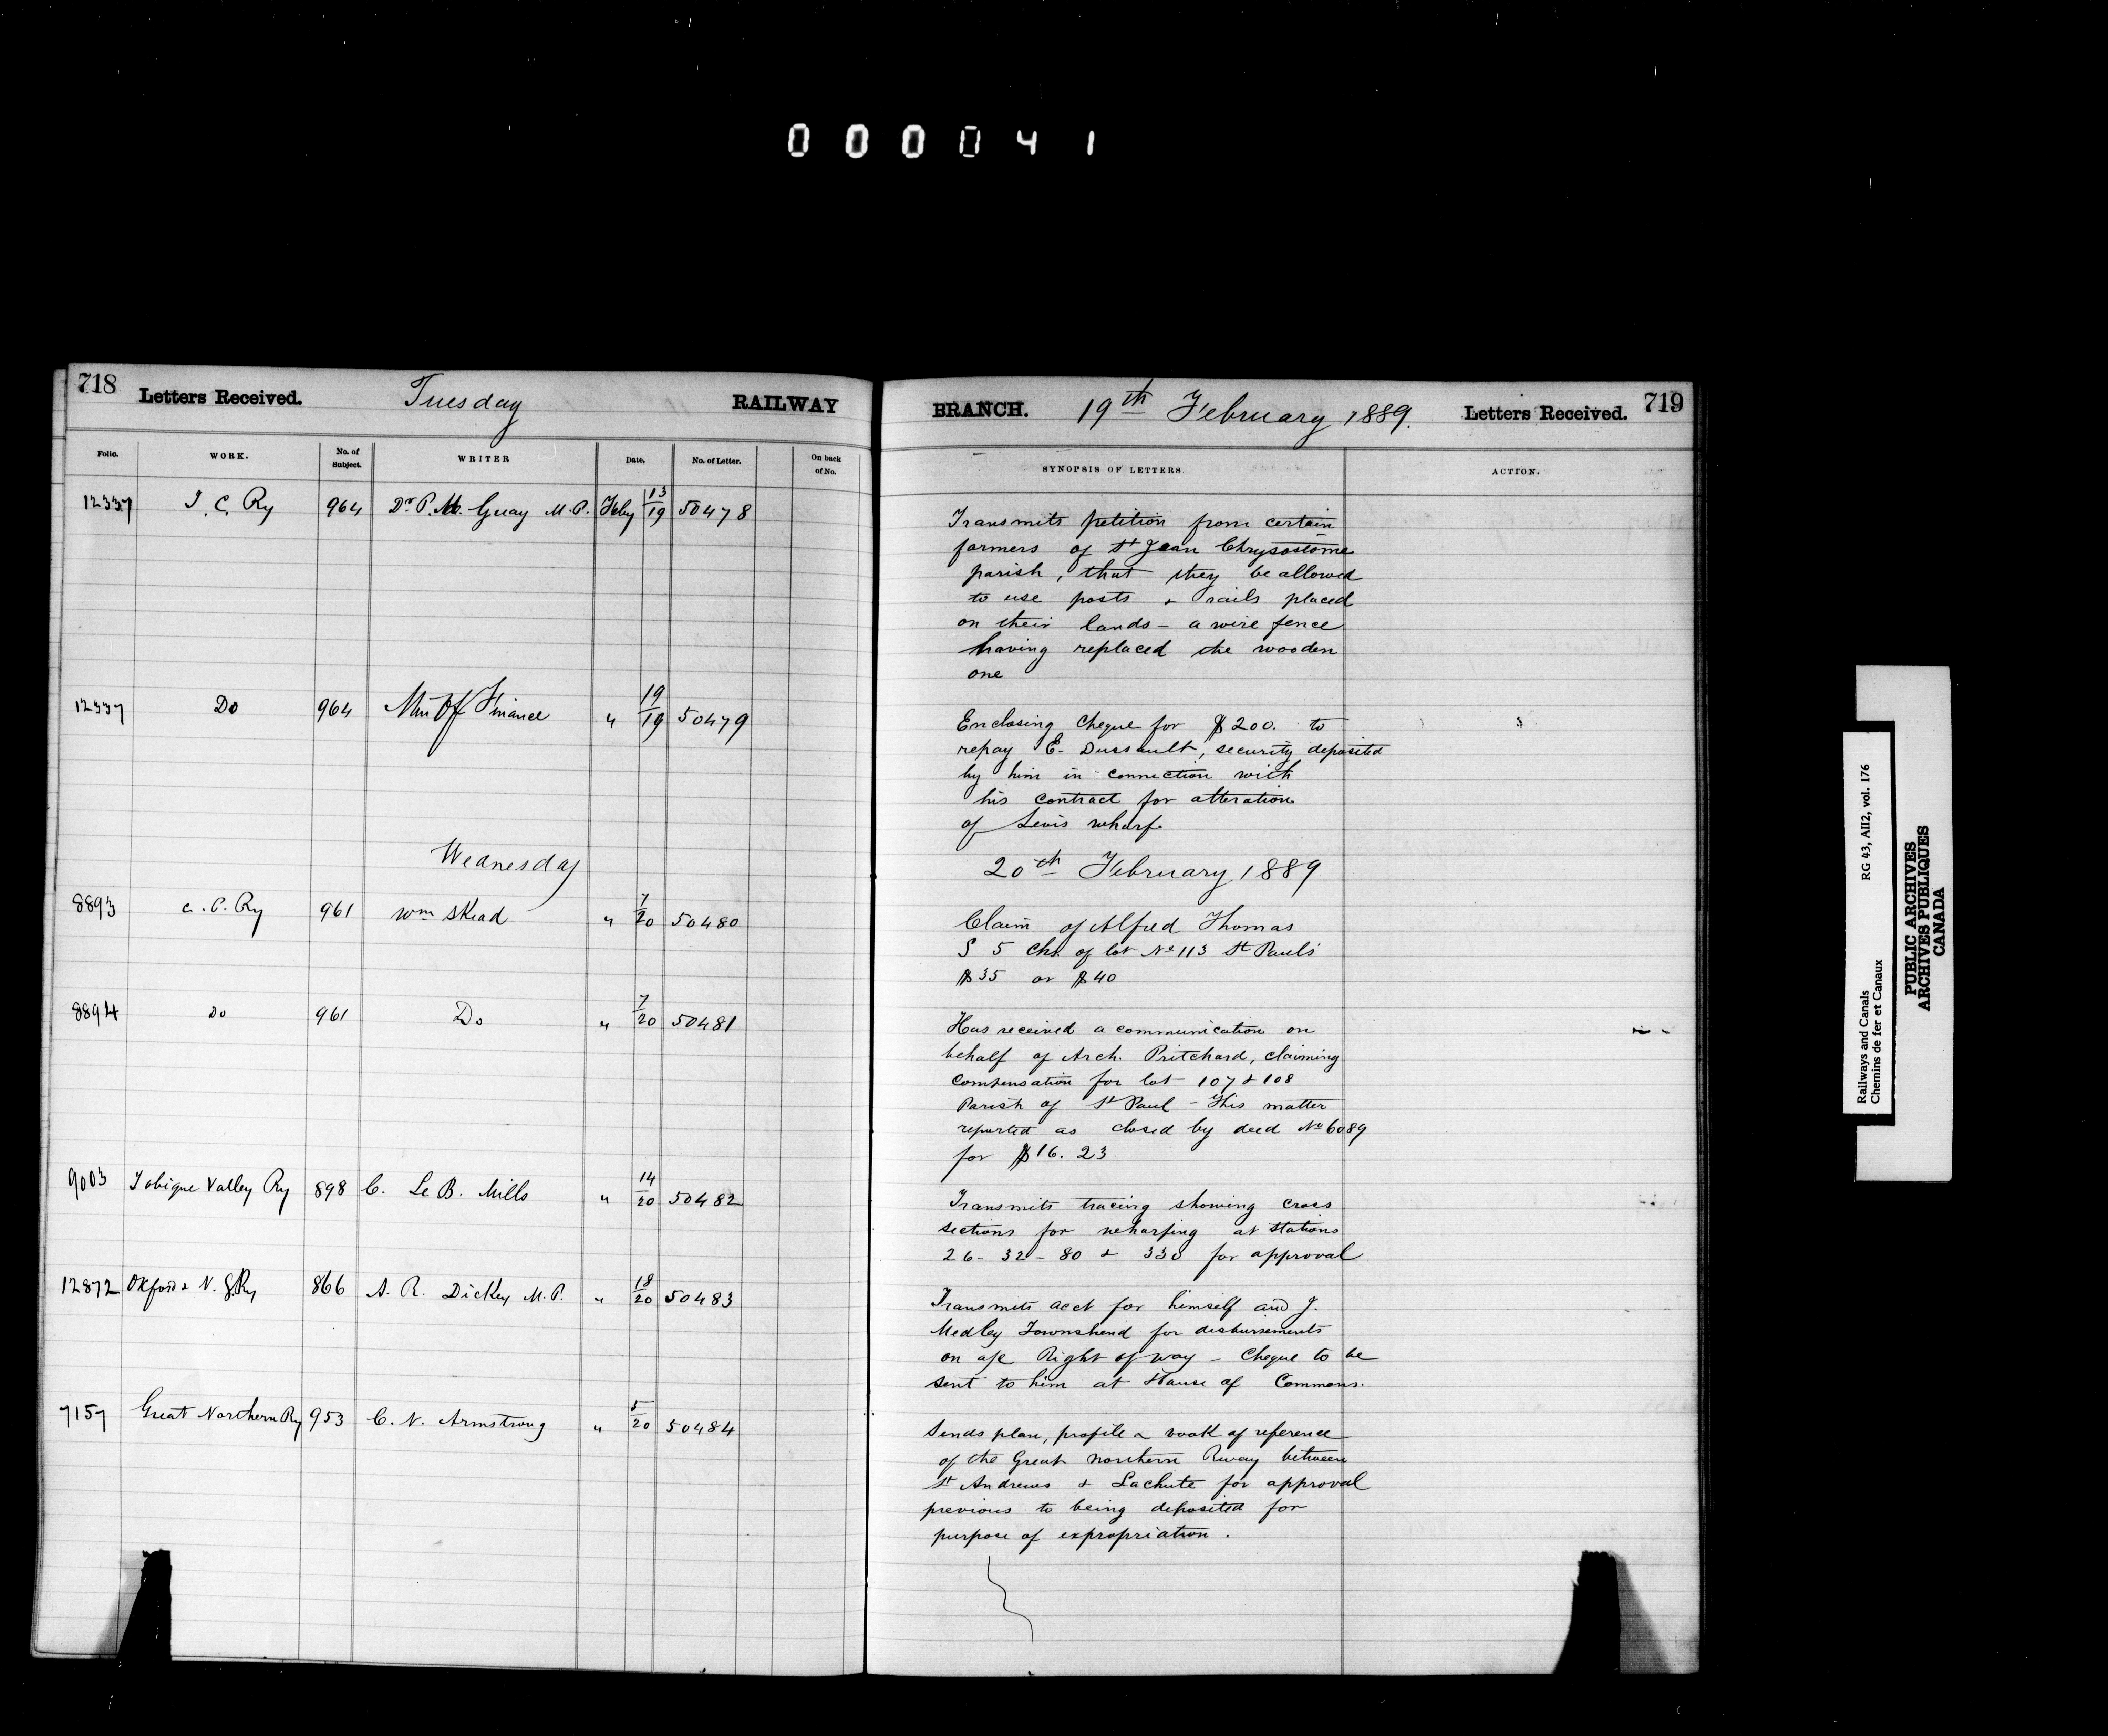 000041
718 Letters Received. Tuesday RAILWAY
Folio. WORK. No. of Subject. WRITER Date. No. of Letter. On back of No.
12337 I. C. Ry 964 Dr P. M. Guay M.P. Feby 13/19 50478
12337 Do 964 Min Of Finance " 19/19 50479
Wednesday
8893 C. P. Ry 961 Wm Skead " 7/20 50480
8894 Do 961 Do " 7/20 50481
9003 Tobique Valley Ry 898 C. Le B. Mills " 14/20 50482
12872 Oxford & N. G. Ry 866 A. R. Dickey M.P. " 18/20 50483
7157 Great Northern Ry 953 C. N. Armstrong " 5/20 50484
BRANCH. 19th February 1889. Letters Received. 719
SYNOPSIS OF LETTERS ACTION.
Transmits petition from certain
farmers of St Jean Chrysostome
parish, that they be allowed
to use posts & rails placed
on their lands - a wire fence
having replaced the wooden
one
Enclosing cheque for $200. to
repay E. Dussault, security deposited
by him in connection with
his contract for alteration
of Levis wharf.
20th February 1889
Claim of Alfred Thomas
S 5 Chs. of lot No 113 St Pauls
$35 or $40
Has received a communication on
behalf of Arch. Pritchard, claiming
compensation for lot 107 & 108
Parish of St Paul - This matter
reported as closed by deed No 6089
for $16.23
Transmits tracing showing cross
sections for wharfing at stations
26 - 32 - 80 & 330 for approval
Transmits acct for himself and J.
Medley Townshend for disbursements
on a/c Right of way - Cheque to be
sent to him at House of Commons.
Sends plan, profile & book of reference
of the Great Northern Rway between
St Andrews & Lachute for approval
previous to being deposited for
purpose of expropriation.
Railways and Canals RG 43, AII2, vol. 176
Chemins de fer et Canaux
PUBLIC ARCHIVES
ARCHIVES PUBLIQUES
CANADA